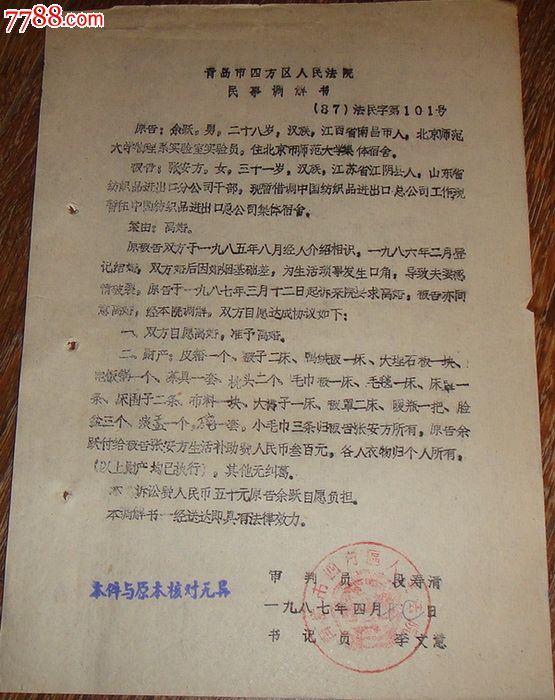 7788.com
青岛市四方区人民法院
民事调解书
(87)法民字第101号
原告:余跃。男,二十八岁,汉族,江西省南昌市人,北京师范
大学物理系实验室实验员。住北京市师范大学集体宿舍。
被告:张安方。女,三十一岁,汉族,江苏省江阴县人,山东省
纺织品进出口分公司干部,现暂借调中国纺织品进出口总公司工作现
暂住中国纺织品进出口总公司集体宿舍。
案由:离婚。
原被告双方于一九八五年八月经人介绍相识,一九八六年二月登
记结婚,双方婚后因婚姻基础差,为生活琐事发生口角,导致夫妻感
情破裂。原告于一九八七年三月十二日起诉来院要求离婚,被告亦同
意离婚,经本院调解,双方自愿达成协议如下:
一、双方自愿离婚,准予离婚。
二、财产:皮箱一个、被子二床、鸭绒被一床、大理石板一块、
电饭锅一个、茶具一套、枕头二个、毛巾被一床、毛毯一床、床单一
条、床围子二条、布料一块、大褥子一床、被罩二床、暖瓶一把、脸
盆三个、痰盂一个、一套。小毛巾三条归被告张安方所有,原告余
跃付给被告张安方生活补助费人民币叁百元,各人衣物归个人所有,
(以上财产均已执行),其他无纠葛。
本 诉讼费人民币五十元原告余跃自愿负担。
本调解书一经送达即具有法律效力。
审判员 段寿清
本件与原本核对无异
一九八七年四月 日
书记员 李文慧
青岛市四方区人民法院